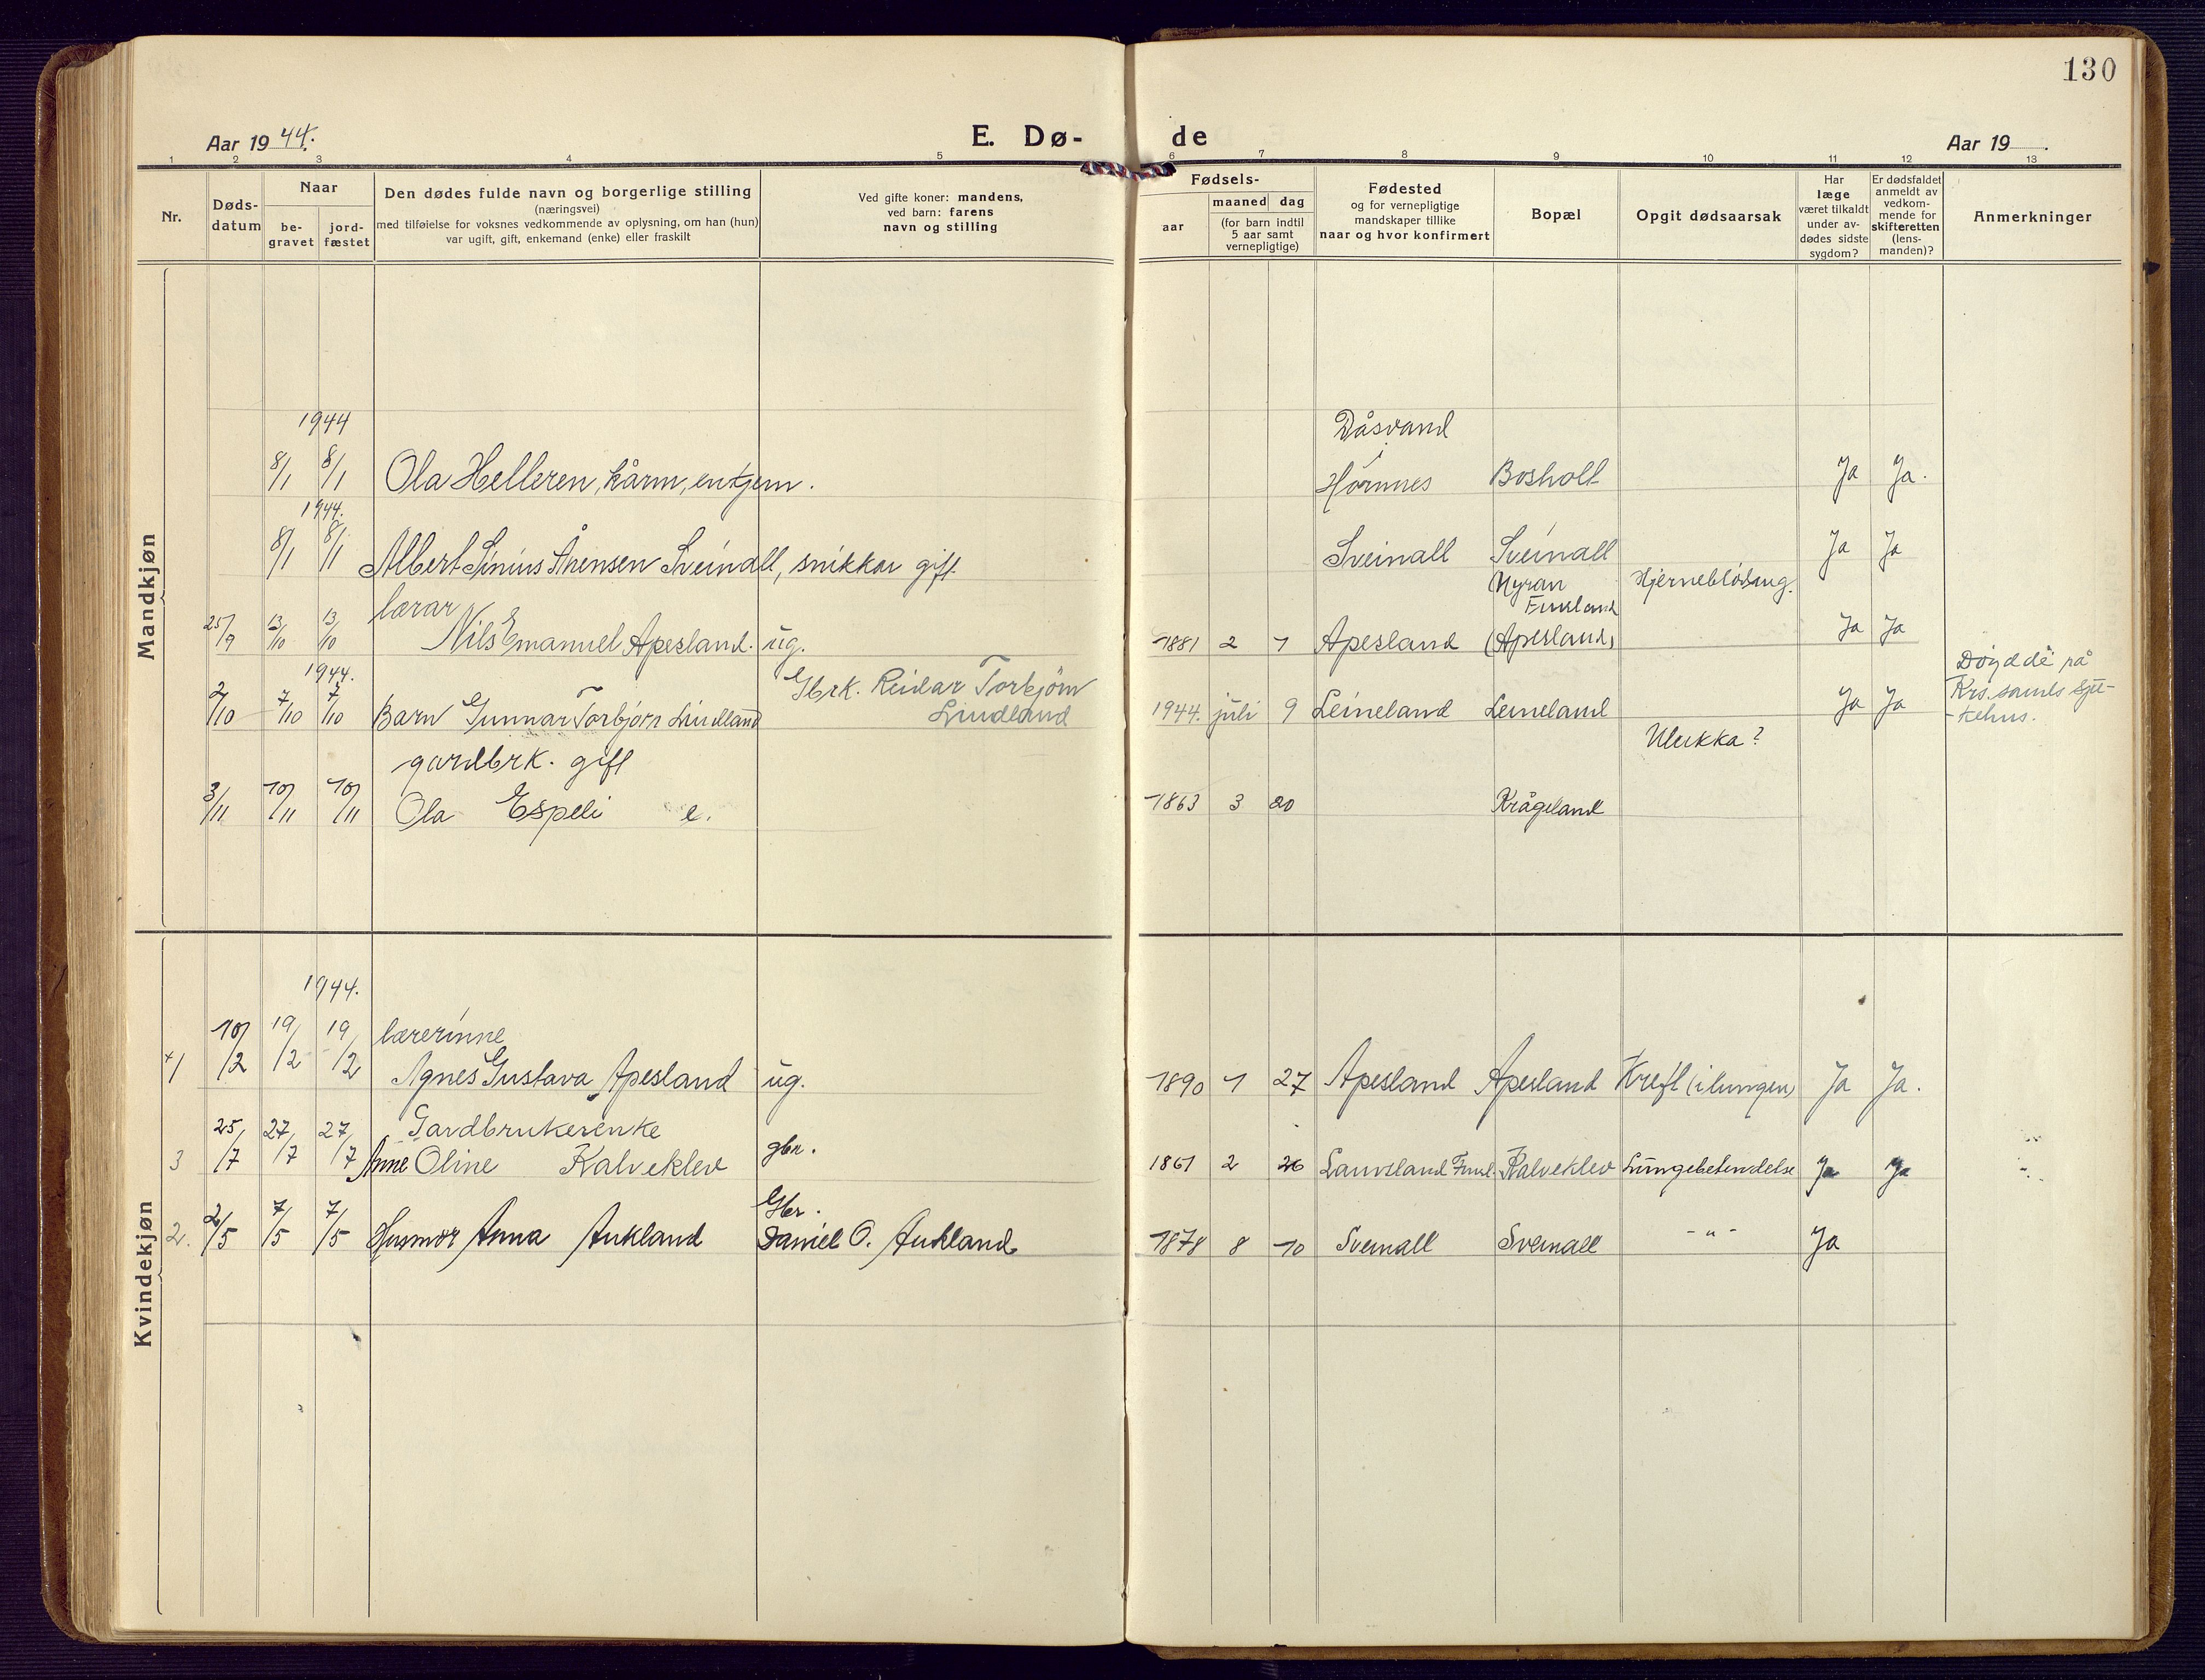 130
Aar 1944.
E. Dø-
de
Aar 19 .
1 2 3 4 5 6 7 8 9 10 11 12 13
Nr.
Døds-
datum
Naar
be-
gravet
jord-
fæstet
Den dødes fulde navn og borgerlige stilling
(næringsvei)
med tilføielse for voksnes vedkommende av oplysning, om han (hun)
var ugift, gift, enkemand (enke) eller fraskilt
Ved gifte koner: mandens,
ved barn: farens
navn og stilling
Fødsels-
aar
maaned dag
(for barn indtil
5 aar samt
vernepligtige)
Fødested
og for vernepligtige
mandskaper tillike
naar og hvor konfirmert
Bopæl
Opgit dødsaarsak
Har
læge
været tilkaldt
under av-
dødes sidste
sygdom?
Er dødsfaldet
anmeldt av
vedkom-
mende for
skifteretten
(lens-
manden)?
Anmerkninger
Mandkjøn
1944 Dåsvand
8/1 8/1 Ola Helleren, kårm, enkjem. Hornnes Bosholt Ja Ja.
1944.
8/1 8/1 Albert Sinius Ånensen Sveinall, snikkar gift Sveinall Sveinall Ja Ja
lærar Nyran Hjerneblödning.
Finsland
25/9 13/10 13/10 Nils Emanuel Apesland. ug. 1881 2 1 Apesland (Apesland) Ja Ja
1944. Gbrk. Reidar Torbjörn Döydde på
2/10 7/10 7/10 Barn Gunnar Torbjörn Lindland Lindland 1944. juli 9 Leineland Leineland Ja Ja Krs. samls sju-
-kehus.
gardbrk. gift Ulukka?
3/11 10/11 10/11 Ola Espeli e. 1863 3 20 Krågeland
Kvindekjøn
1944.
lærerinne
+1 10/2 19/2 19/2 Agnes Gustava Apesland ug. 1890 1 27 Apesland Apesland Kreft (i lungen) Ja Ja.
Gardbrukerenke
3 25/7 27/7 27/7 Anne Oline Kalveklev gbr. 1861 2 26 Lauvsland Finsl. Kalveklev Lungebetendelse Ja Ja
Gbr.
2. 2/5 7/5 7/5 Husmor Anna Aukland Daniel O. Aukland 1878 8 10 Sveinall Sveinall - " - Ja